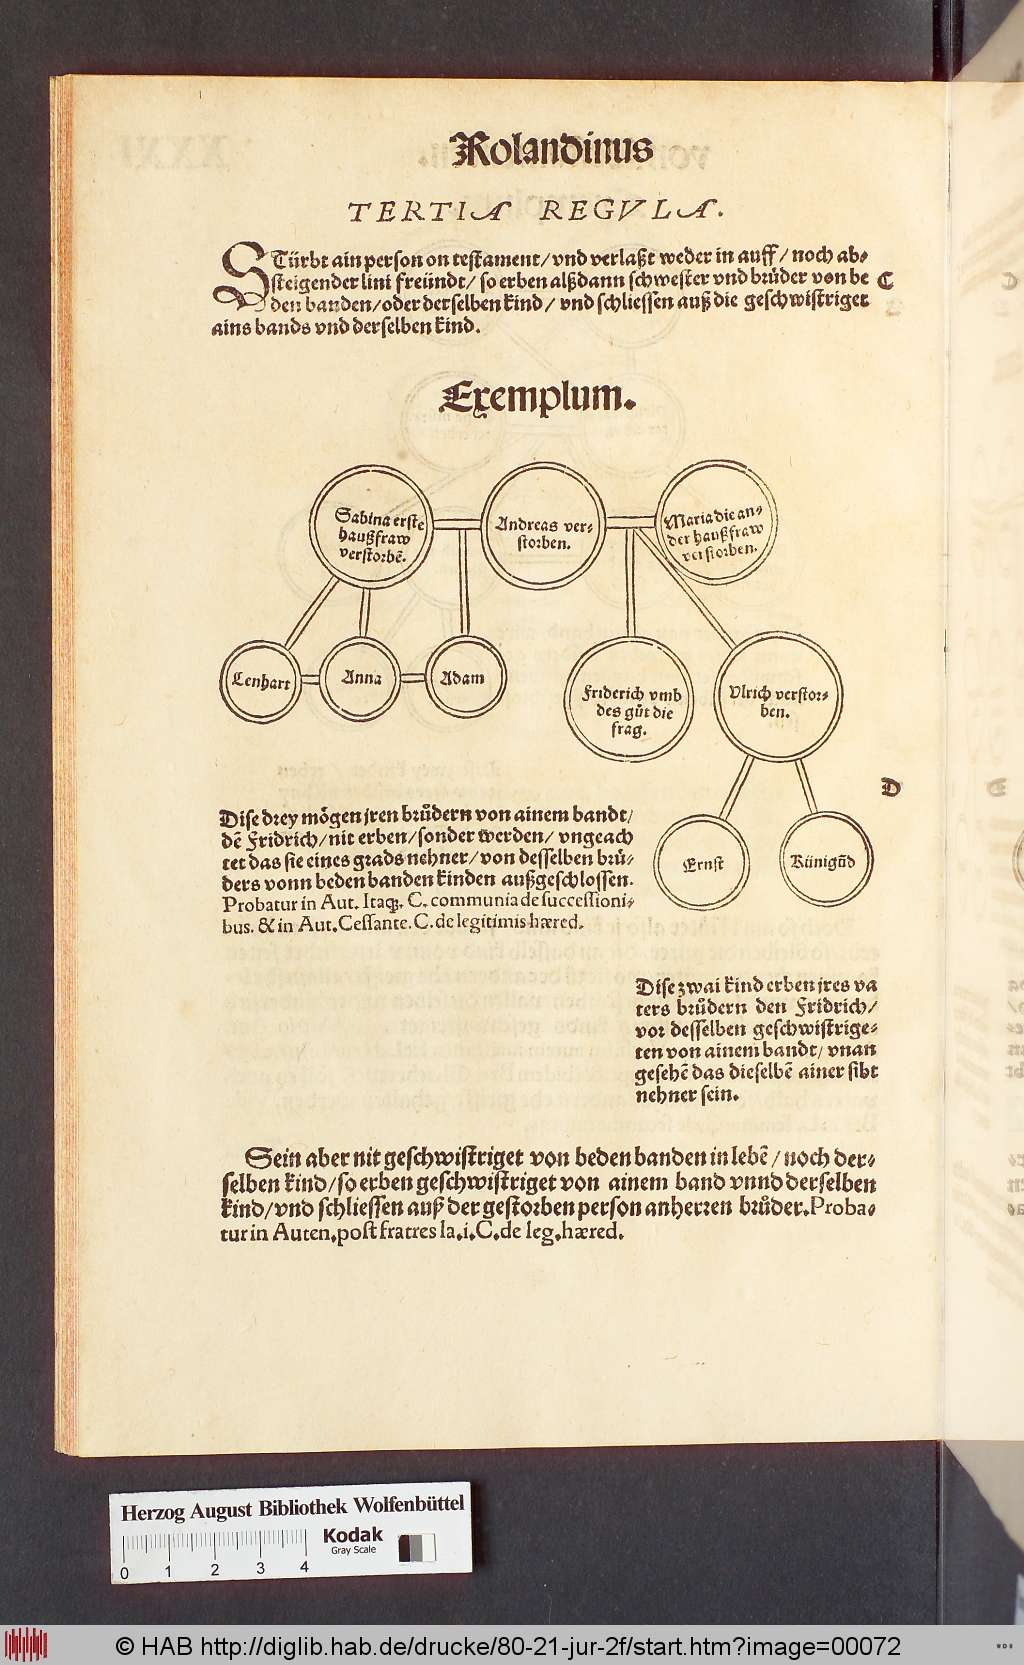 Rolandinus
TERTIA REGVLA.
STürbt ain person on testament/ vnd verlaßt weder in auff/ noch ab⸗
steigender lini freündt/ so erben alßdann schwester vnd brůder von be
den banden/ oder derselben kind/ vnd schliessen auß die geschwistriget
ains bands vnd derselben kind.
C
Exemplum.
Sabina erste
haußfraw
verstorbē.
Andreas ver⸗
storben.
Maria die an⸗
der haußfraw
verstorben.
Lenhart
Anna
Adam
Friderich vmb
des gůt die
frag.
Vlrich verstor⸗
ben.
D
Ernst
Künigūd
Dise drey mögen jren brůdern von ainem bandt/
dē Fridrich/ nit erben/ sonder werden/ vngeach
tet das sie eines grads nehner/ von desselben brů⸗
ders vonn beden banden kinden außgeschlossen.
Probatur in Aut. Itaq;. C. communia de successioni⸗
bus. & in Aut. Cessante. C. de legitimis hæred.
Dise zwai kind erben jres va
ters brůdern den Fridrich/
vor desselben geschwistrige⸗
ten von ainem bandt/ vnan
gesehē das dieselbē ainer sibt
nehner sein.
Sein aber nit geschwistriget von beden banden in lebē/ noch der⸗
selben kind/ so erben geschwistriget von ainem band vnnd derselben
kind/ vnd schliessen auß der gestorben person anherren brůder. Proba⸗
tur in Auten. post fratres la. i. C. de leg. hæred.
Herzog August Bibliothek Wolfenbüttel
Kodak
Gray Scale
0 1 2 3 4
© HAB http://diglib.hab.de/drucke/80-21-jur-2f/start.htm?image=00072